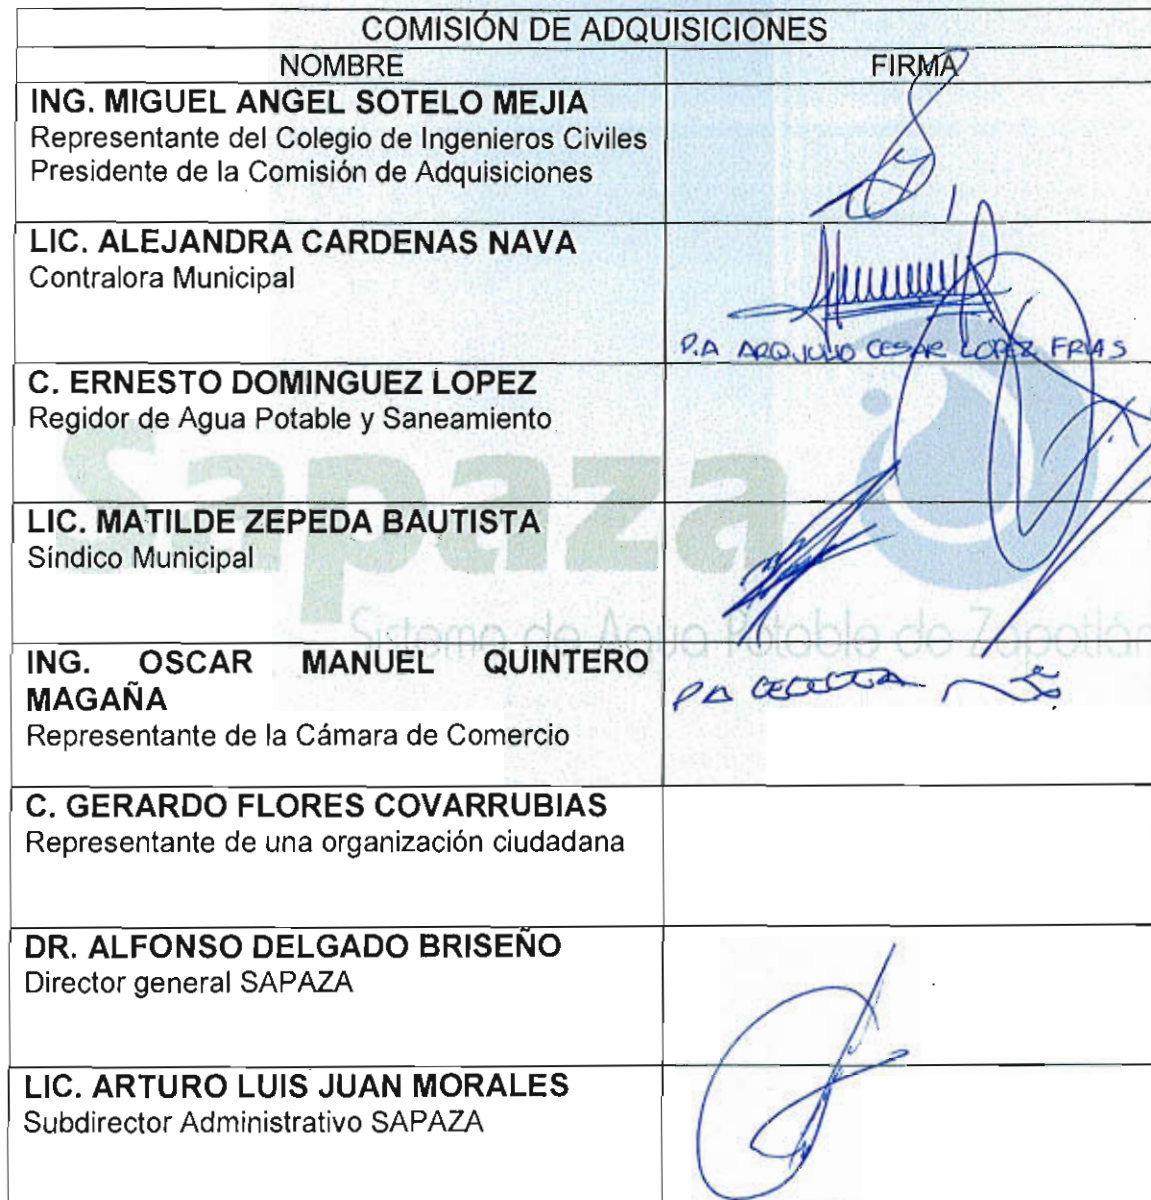 COMISIÓN DE ADQUISICIONES
NOMBRE FIRMA
ING. MIGUEL ANGEL SOTELO MEJIA
Representante del Colegio de Ingenieros Civiles
Presidente de la Comisión de Adquisiciones
LIC. ALEJANDRA CARDENAS NAVA
Contralora Municipal
P.A ARQ. JULIO CESAR LOPEZ FRIAS
C. ERNESTO DOMINGUEZ LOPEZ
Regidor de Agua Potable y Saneamiento
Sapaza
LIC. MATILDE ZEPEDA BAUTISTA
Síndico Municipal
Sistema de Agua Potable de Zapotlán
ING. OSCAR MANUEL QUINTERO
MAGAÑA
P.A
Representante de la Cámara de Comercio
C. GERARDO FLORES COVARRUBIAS
Representante de una organización ciudadana
DR. ALFONSO DELGADO BRISEÑO
Director general SAPAZA
LIC. ARTURO LUIS JUAN MORALES
Subdirector Administrativo SAPAZA